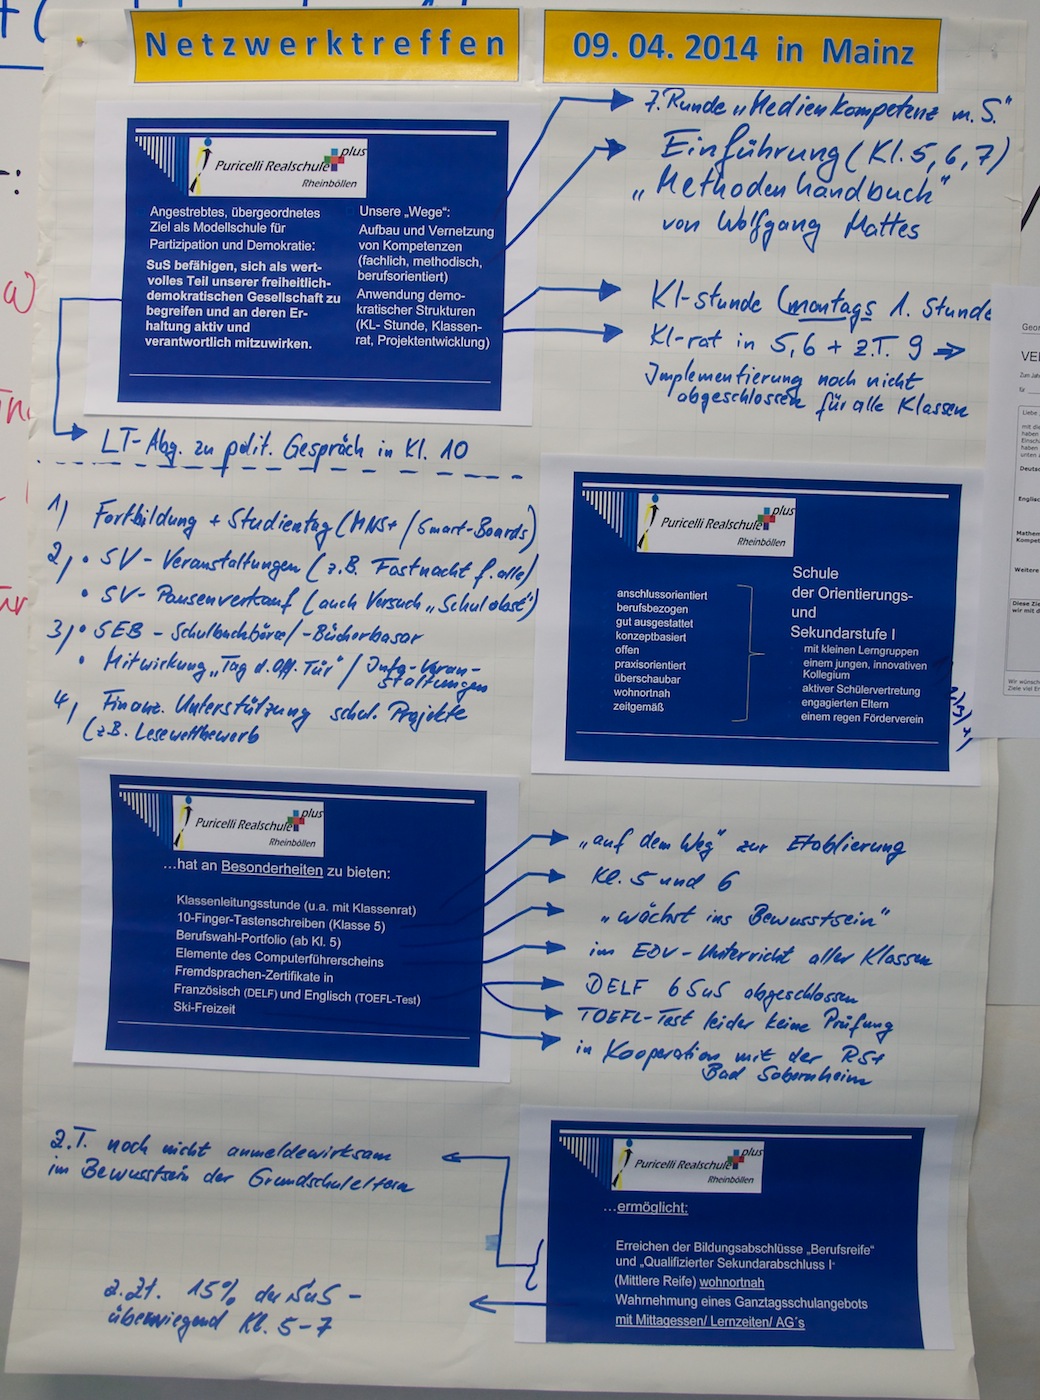 Netzwerktreffen
09. 04. 2014 in Mainz
Puricelli Realschule plus
Rheinböllen
Angestrebtes, übergeordnetes
Ziel als Modellschule für
Partizipation und Demokratie:
SuS befähigen, sich als wert-
volles Teil unserer freiheitlich-
demokratischen Gesellschaft zu
begreifen und an deren Er-
haltung aktiv und
verantwortlich mitzuwirken.
Unsere „Wege“:
Aufbau und Vernetzung
von Kompetenzen
(fachlich, methodisch,
berufsorientiert)
Anwendung demo-
kratischer Strukturen
(KL- Stunde, Klassen-
rat, Projektentwicklung)
7. Runde „Medienkompetenz m. S.“
Einführung (Kl. 5, 6, 7)
„Methodenhandbuch“
von Wolfgang Mattes
Kl-stunde (montags 1. Stunde
Kl-rat in 5,6 + z.T. 9 ⇒
Implementierung noch nicht
abgeschlossen für alle Klassen
LT-Abg. zu polit. Gespräch in Kl. 10
1) Fortbildung + Studientag (MNS+ / Smart-Boards)
2) • SV - Veranstaltungen (z.B. Fastnacht f. alle)
• SV - Pausenverkauf (auch Versuch „Schulobst“)
3) • SEB - Schulbuchbörse/-Bücherbasar
• Mitwirkung „Tag d. Off. Tür“ / Info-Veran-
staltungen
4) Finanz. Unterstützung schul. Projekte
(z.B. Lesewettbewerb
Puricelli Realschule plus
Rheinböllen
anschlussorientiert
berufsbezogen
gut ausgestattet
konzeptbasiert
offen
praxisorientiert
überschaubar
wohnortnah
zeitgemäß
Schule
der Orientierungs-
und
Sekundarstufe I
mit kleinen Lerngruppen
einem jungen, innovativen
Kollegium
aktiver Schülervertretung
engagierten Eltern
einem regen Förderverein
Puricelli Realschule plus
Rheinböllen
…hat an Besonderheiten zu bieten:
Klassenleitungsstunde (u.a. mit Klassenrat)
10-Finger-Tastenschreiben (Klasse 5)
Berufswahl-Portfolio (ab Kl. 5)
Elemente des Computerführerscheins
Fremdsprachen-Zertifikate in
Französisch (DELF) und Englisch (TOEFL-Test)
Ski-Freizeit
„auf dem Weg“ zur Etablierung
Kl. 5 und 6
„wächst ins Bewusstsein“
im EDV-Unterricht aller Klassen
DELF 6 SuS abgeschlossen
TOEFL-Test leider keine Prüfung
in Kooperation mit der RS+
Bad Sobernheim
z.T. noch nicht anmeldewirksam
im Bewusstsein der Grundschuleltern
z.Zt. 15% der SuS -
überwiegend Kl. 5-7
Puricelli Realschule plus
Rheinböllen
…ermöglicht:
Erreichen der Bildungsabschlüsse „Berufsreife“
und „Qualifizierter Sekundarabschluss I“
(Mittlere Reife) wohnortnah
Wahrnehmung eines Ganztagsschulangebots
mit Mittagessen/ Lernzeiten/ AG´s